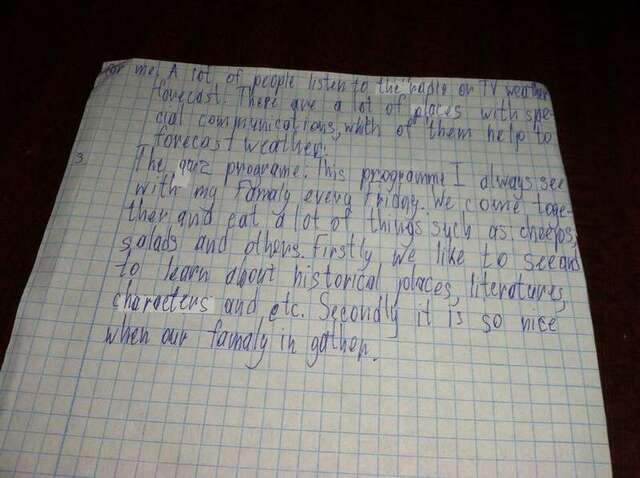 for me. A lot of people listen to the radio or TV weather
forecast. There are a lot of places with spe-
cial communications, which of them help to
forecast weather.
3. The quiz programe. This programme I always see
with my Famaly every Friday. We come toge-
ther and eat a lot of things such as cheeps,
salads and others. Firstly we like to see and
to learn about historical places, literatures,
characters and etc. Secondly it is so nice
when our famaly in gather.